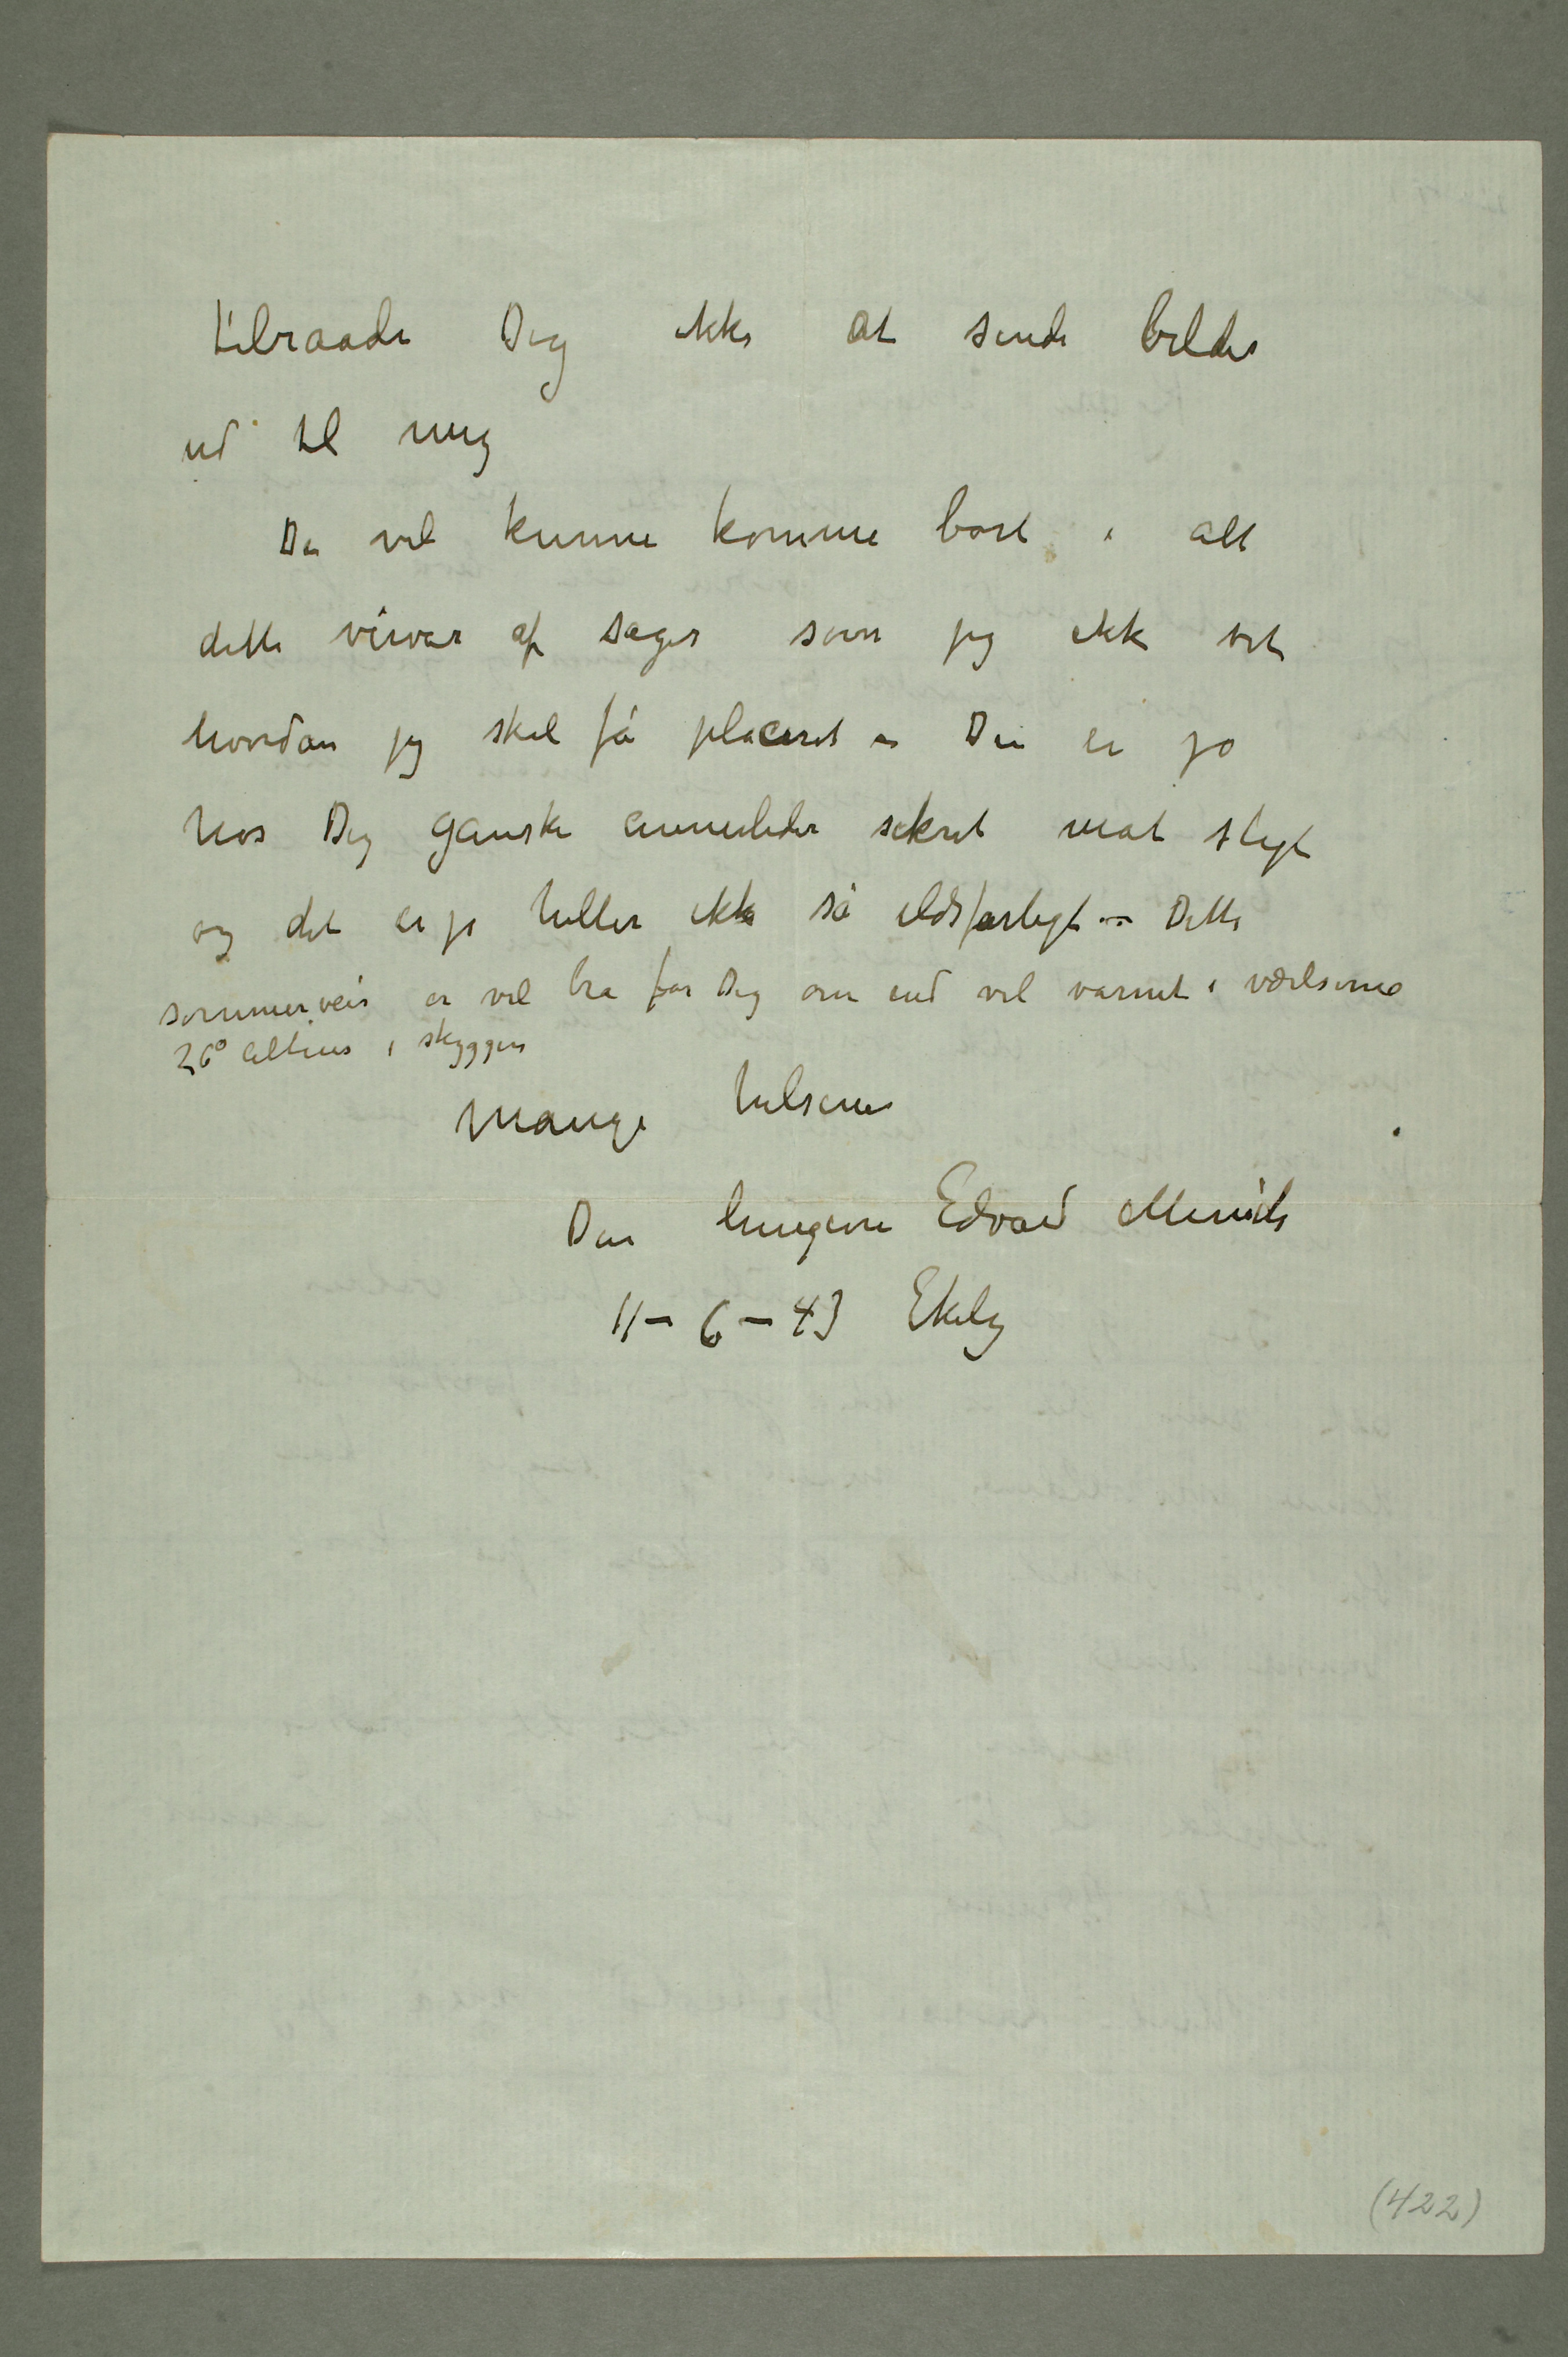 tilraade Dig ikke at sende billder
ud til mig
De vil kunne komme bort i alt
dette virvar af sager som jeg ikke vet
hvordan jeg skal få placeret – De er jo
hos Dig ganske annerledes sikret mot sligt
og det er jo heller ikke så ildsfarligt – Dette
sommerveir er vel bra for Dig om end vel varmt i værelserne
26° Celtius i skyggen
Mange hilsener
Din hengivne Edvard Munch
11 – 6 – 43 Ekely
(422)